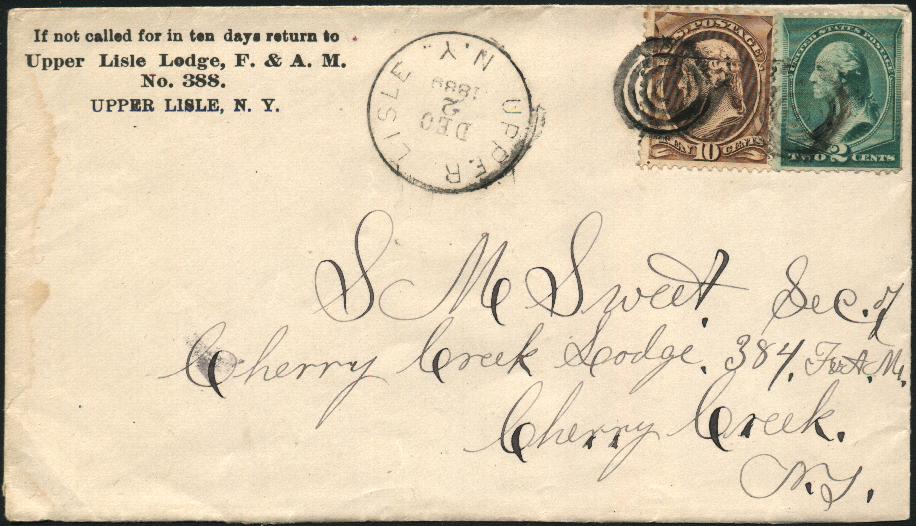 If not called for in ten days return to
Upper Lisle Lodge, F. & A. M.
No. 388.
UPPER LISLE, N. Y.
UPPER LISLE N.Y.
DEC
2
1889
U.S. POSTAGE
TEN 10 CENTS
UNITED STATES POSTAGE
TWO 2 CENTS
S M Sweet. Sec. of
Cherry Creek Lodge. 384, F & A. M.
Cherry Creek.
N.Y.